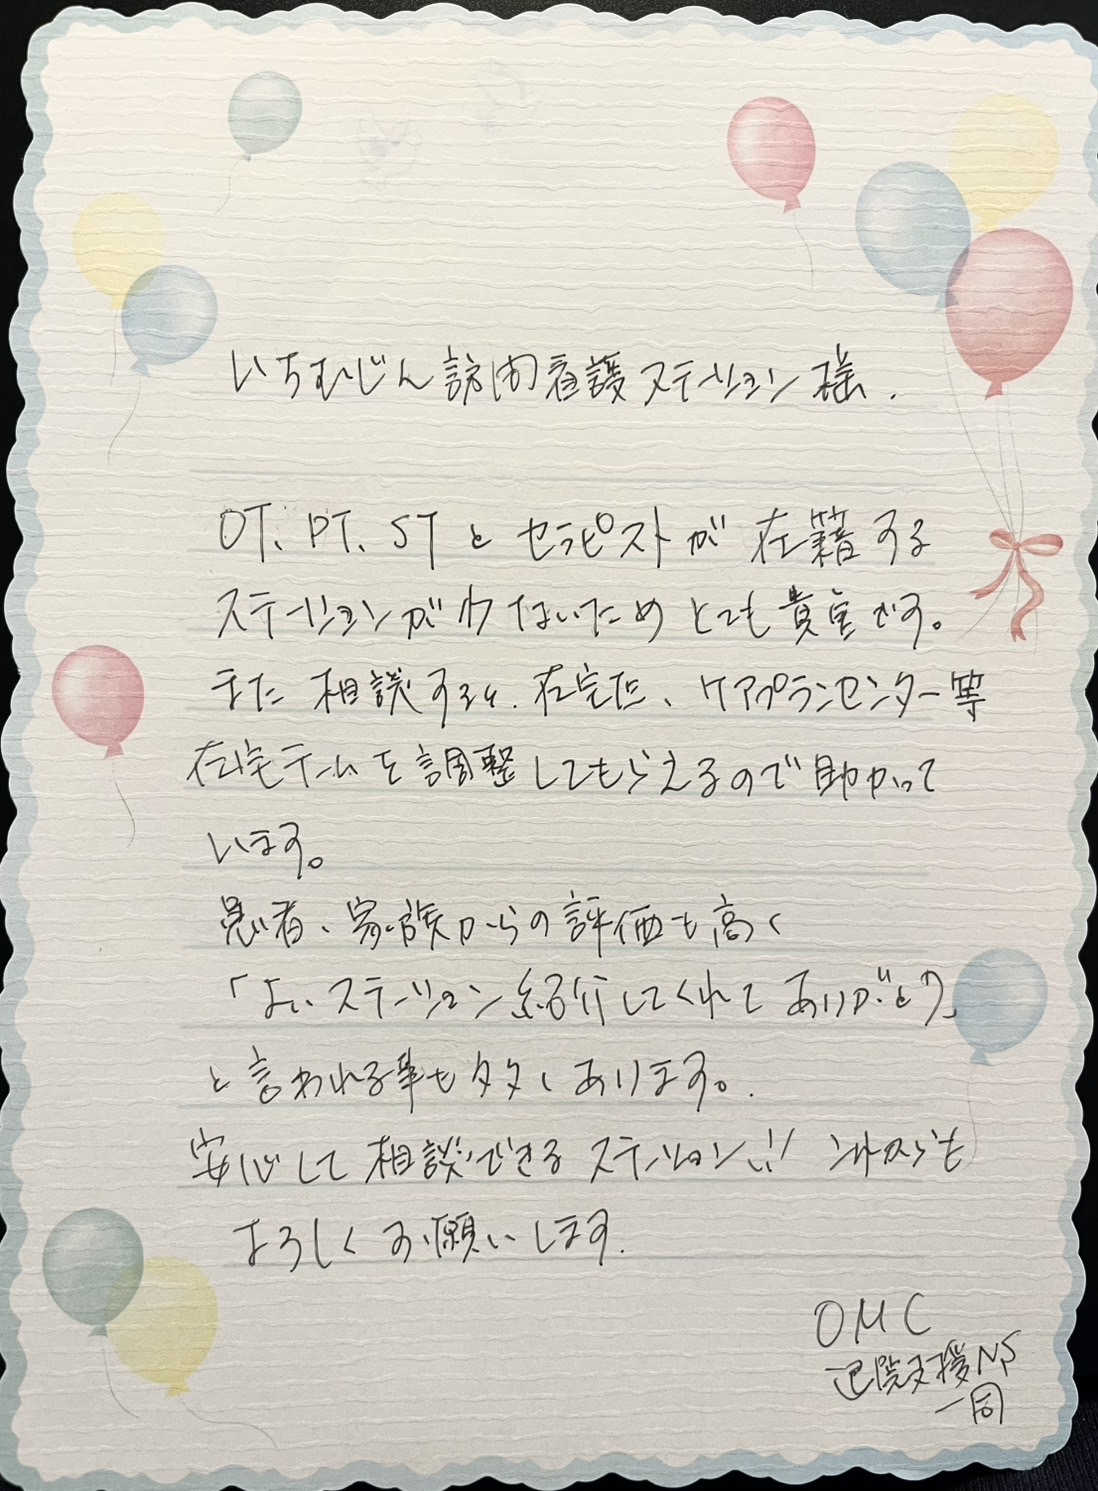 いちむじん訪問看護ステーション様.
OT、PT、STとセラピストが在籍する
ステーションが少ないためとても貴重です。
また相談すると、在宅医、ケアプランセンター等
在宅チームを調整してもらえるので助かって
います。
患者、家族からの評価も高く
「よいステーション紹介してくれてありがとう」
と言われる事も多くあります。
安心して相談できるステーション!! これからも
よろしくお願いします.
OMC
退院支援NS
一同